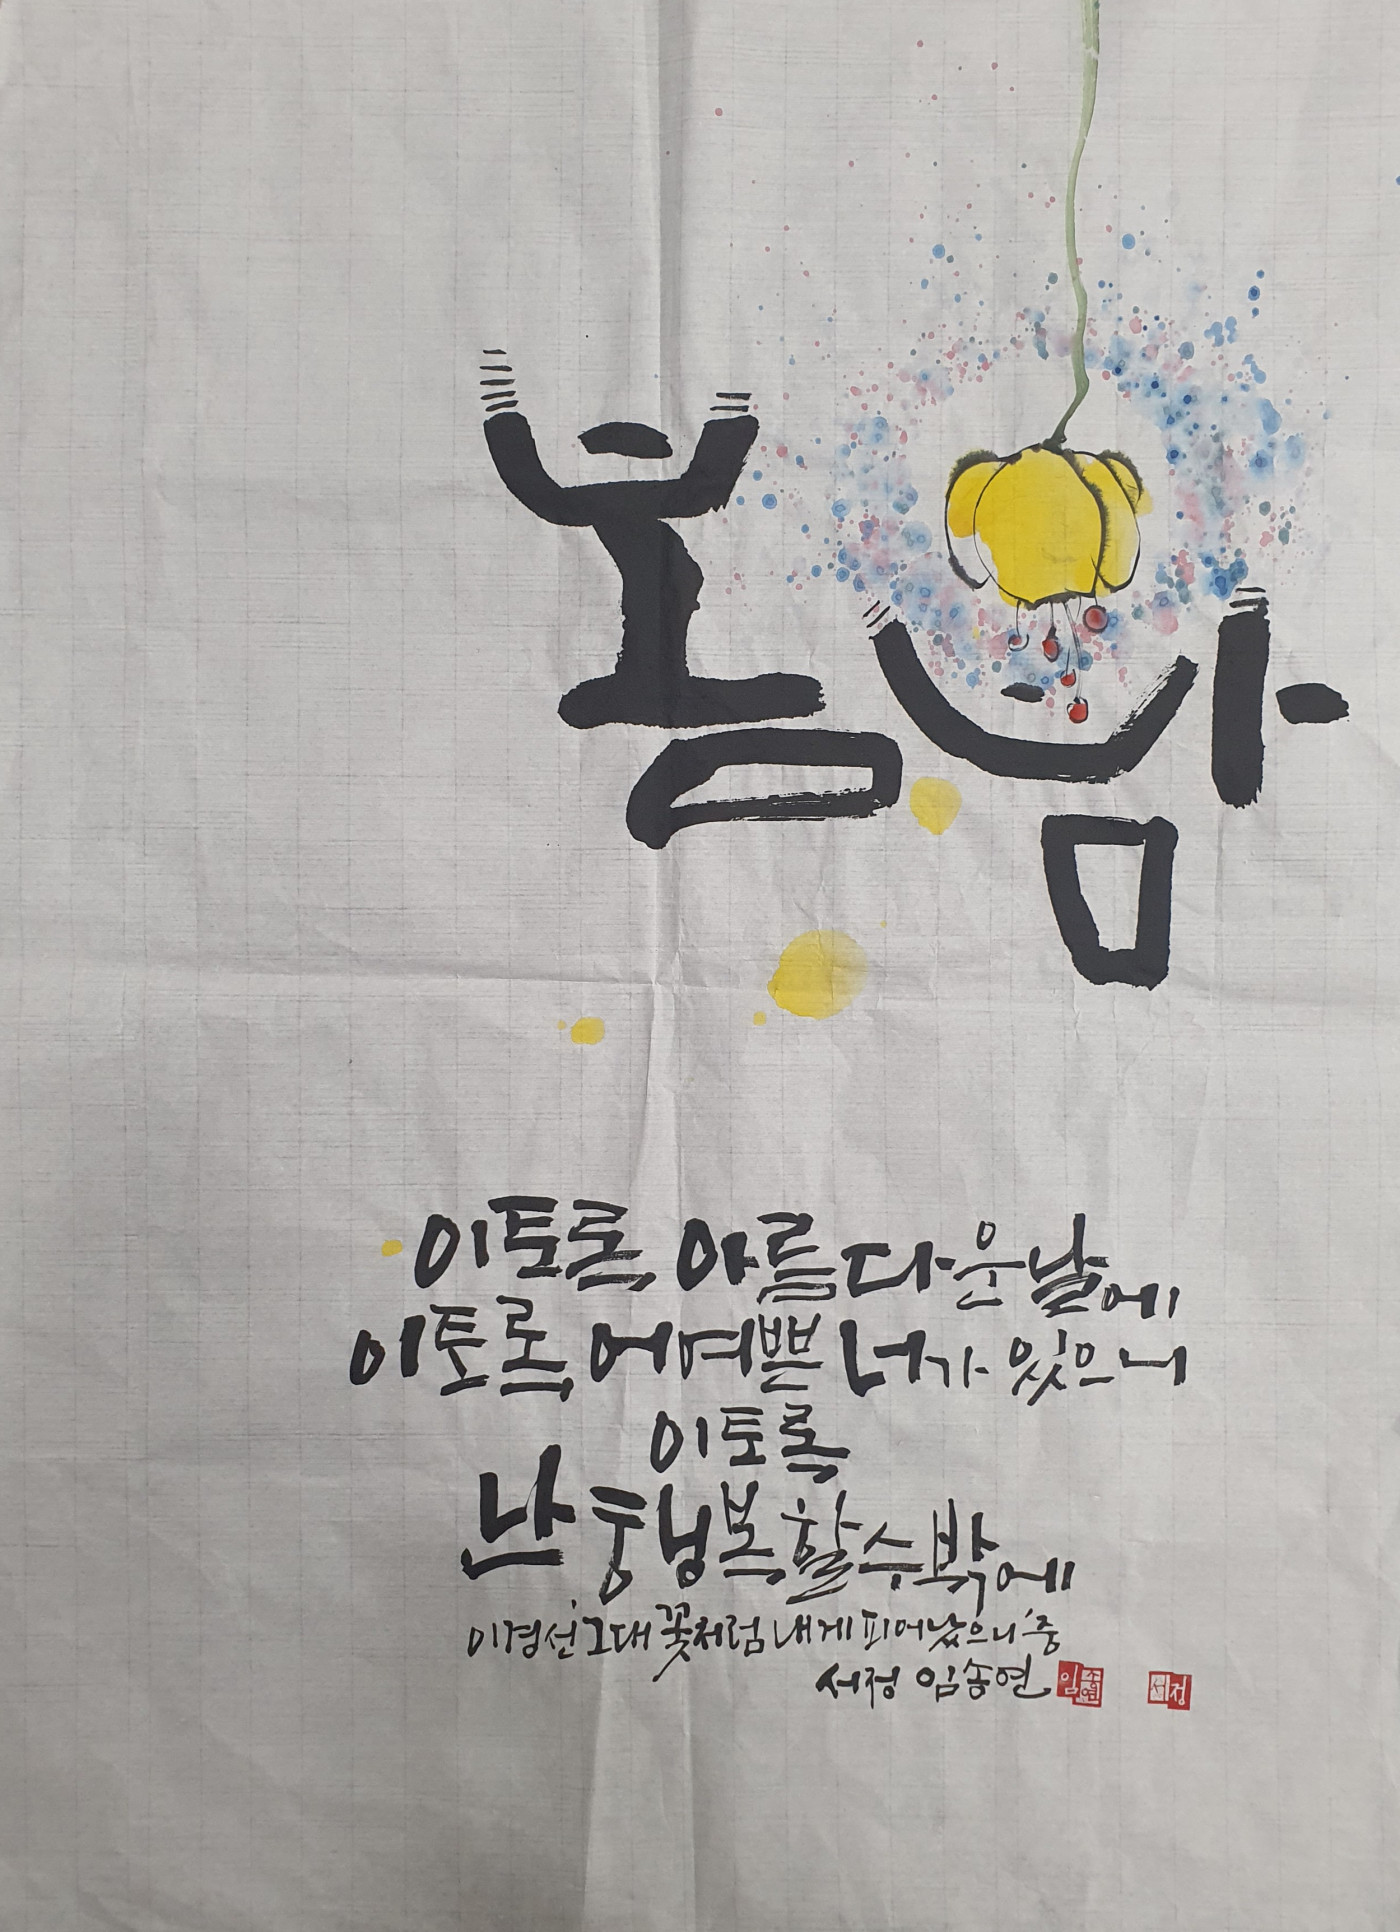 봄밤
이토록 아름다운 날에
이토록 어여쁜 너가 있으니
이토록
난 행복할 수 밖에
이경선 '그대 꽃처럼 내게 피어났으니' 중
서정 임송연 임송연 서정